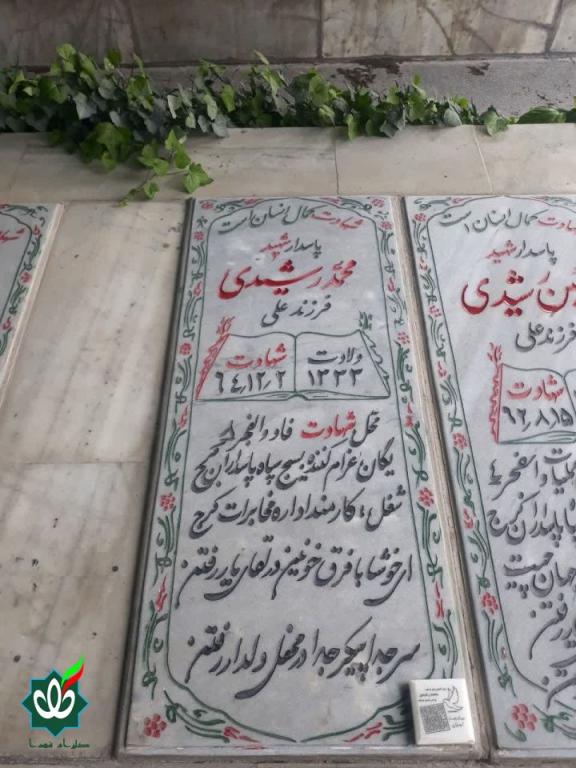 شهادت کمال انسان است
پاسدار شهید
محمد رشیدی
فرزند علی
ولادت
۱۳۳۳
شهادت
۶۴٫۱۲٫۲
محل شهادت فاو والفجر ۸
یگان اعزام کننده بسیج سپاه پاسداران کرج
شغل: کارمند اداره مخابرات کرج
ای خوشا با فرق خونین در لقای یار رفتن
سر جدا پیکر جدا در محفل دلدار رفتن
شهادت کمال انسان است
پاسدار شهید
رشیدی
فرزند علی
شهادت
۶۲٫۸٫۱۵
والفجر ۴
پاسداران کرج
جهان چیست
رفتن
رفتن